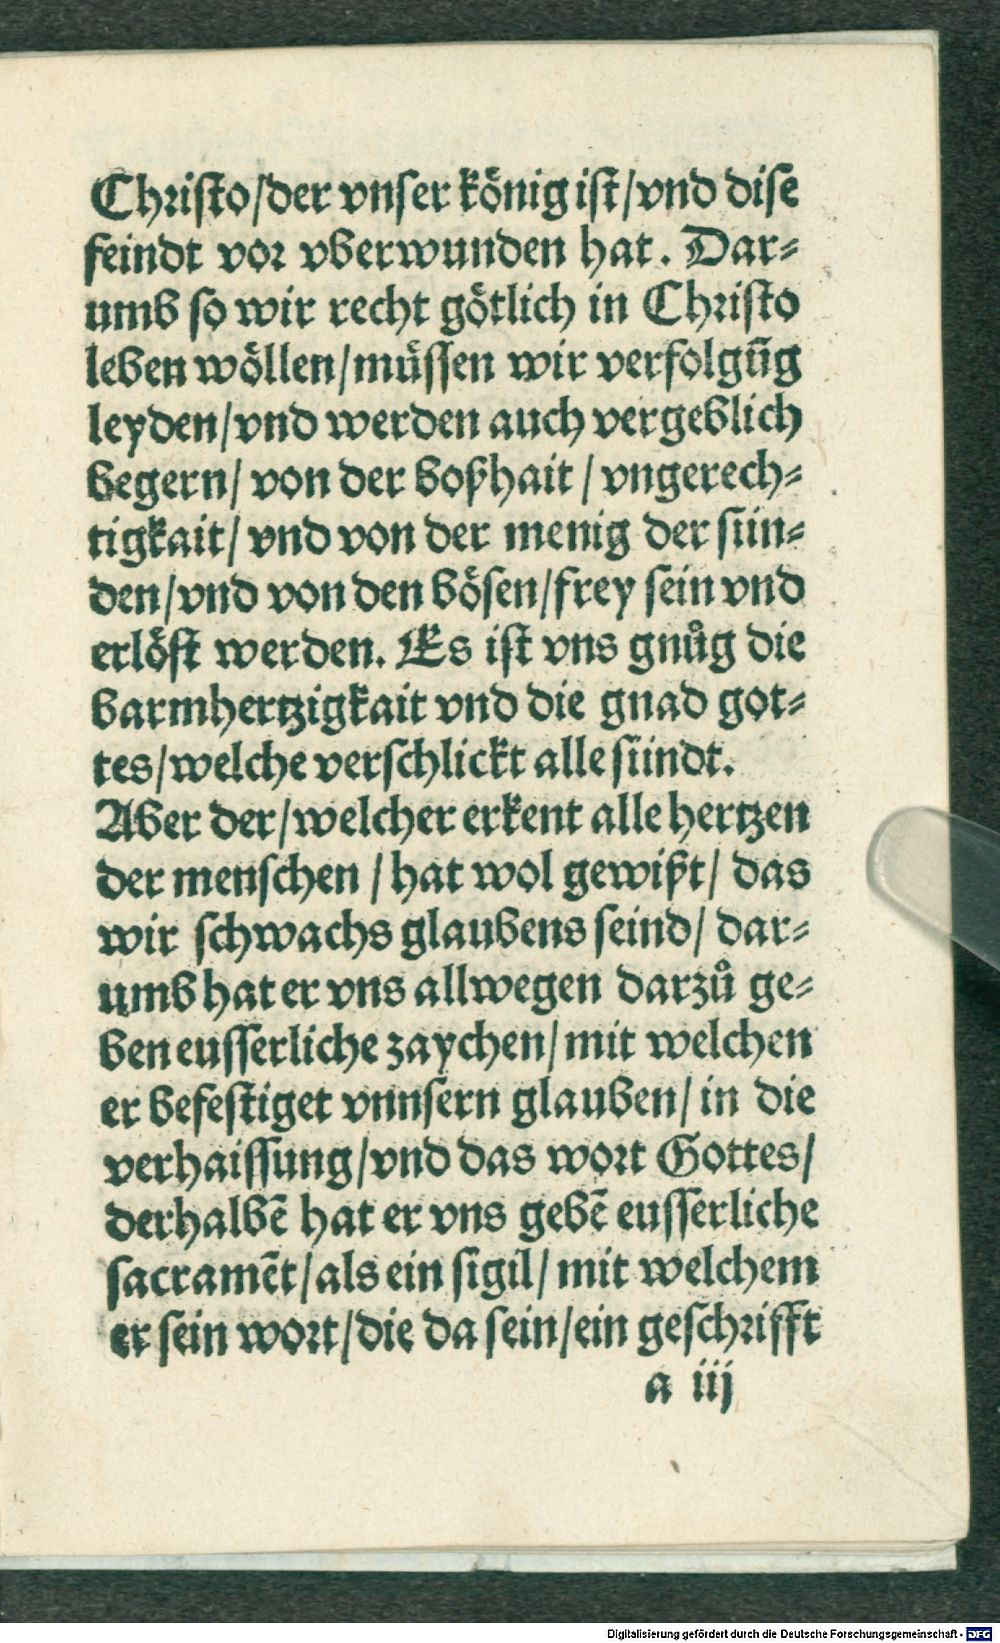 Christo/der vnser könig ist/vnd dise
feindt vor vberwunden hat. Dar⸗
umb so wir recht götlich in Christo
leben wöllen/müssen wir verfolgūg
leyden/vnd werden auch vergeblich
begern/ von der boßhait / vngerech⸗
tigkait/ vnd von der menig der sün⸗
den/vnd von den bösen/frey sein vnd
erlöst werden. Es ist vns gnůg die
barmhertzigkait vnd die gnad got⸗
tes/welche verschlickt alle sündt.
Aber der/welcher erkent alle hertzen
der menschen / hat wol gewißt/ das
wir schwachs glaubens seind/ dar⸗
umb hat er vns allwegen darzů ge⸗
ben eusserliche zaychen/mit welchen
er befestiget vnnsern glauben/in die
verhaissung/vnd das wort Gottes/
derhalbē hat er vns gebē eusserliche
sacramēt/als ein sigil/mit welchem
er sein wort/die da sein/ein geschrifft
a iij
Digitalisierung gefördert durch die Deutsche Forschungsgemeinschaft - DFG